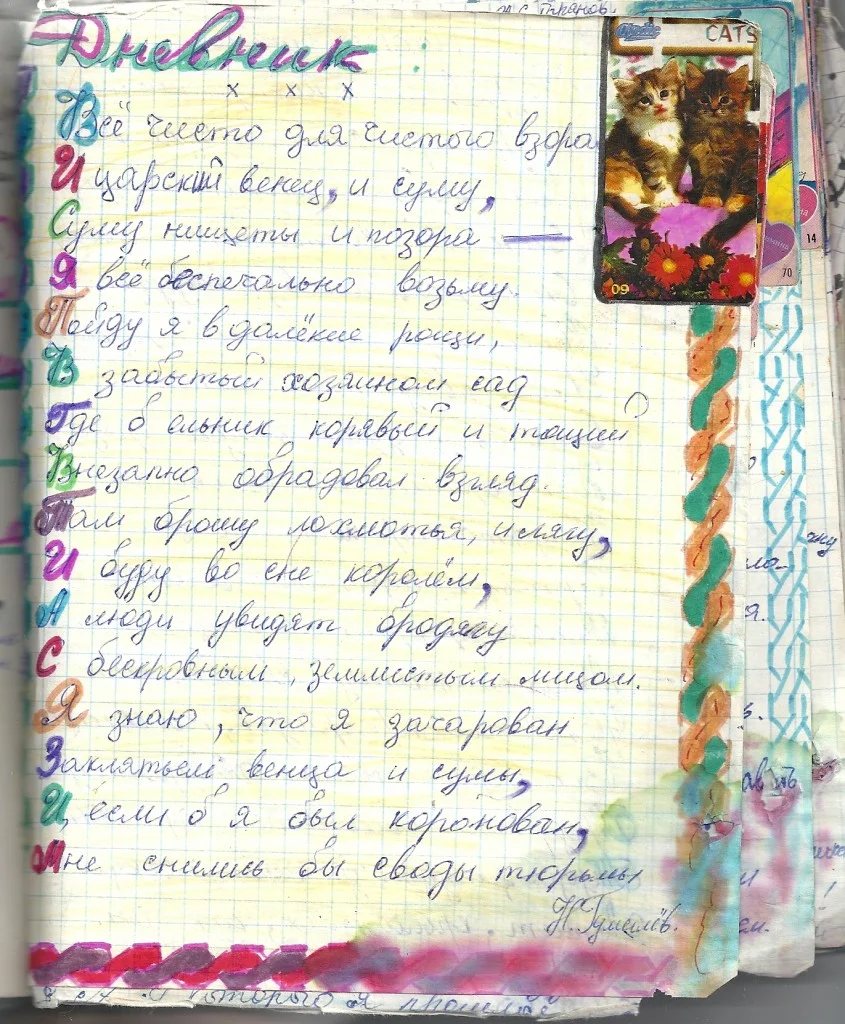 Дневник :
х х х
Всё чисто для чистого взора
И царский венец, и суму,
Суму нищеты и позора —
Я всё беспечально возьму.
Пойду я в далёкие рощи,
В забытый хозяином сад
Где б ельник корявый и тощий
Внезапно обрадовал взгляд.
Там брошу лохмотья, и лягу,
И буду во сне королём,
А люди увидят бродягу
С бескровным, землистым лицом.
Я знаю, что я зачарован
Заклятьем венца и сумы,
И, если б я был коронован,
Мне снились бы своды тюрьмы
Н. Гумилёв.
CATS
09
14
70